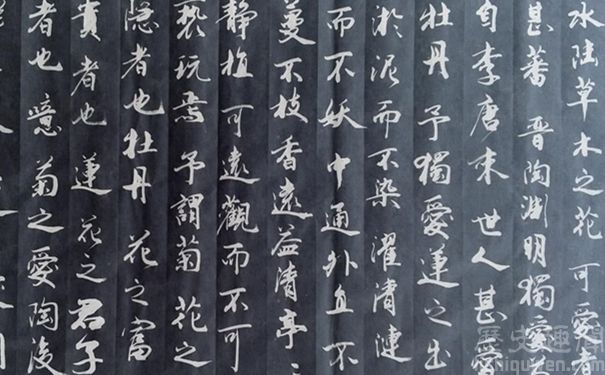 水陸草木之花可愛者
甚蕃晋陶渊明獨愛
自李唐来世人甚愛
牡丹予獨愛蓮之出
淤泥而不染濯清漣
而不妖中通外直不
蔓不枝香遠益清亭
静植可遠觀而不可
褻玩焉予謂菊花之
隱者也牡丹花之富
貴者也蓮花之君子
者也噫菊之愛陶後